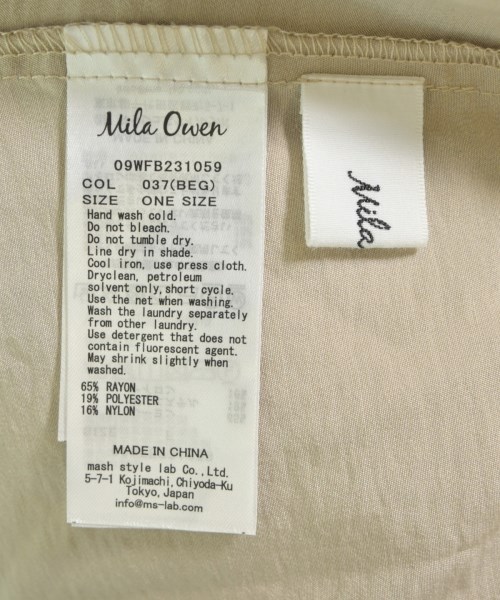 Mila Owen
09WFB231059
COL 037(BEG)
SIZE ONE SIZE
Hand wash cold.
Do not bleach.
Do not tumble dry.
Line dry in shade.
Cool iron, use press cloth.
Dryclean, petroleum
solvent only,short cycle.
Use the net when washing.
Wash the laundry separately
from other laundry.
Use detergent that does not
contain fluorescent agent.
May shrink slightly when
washed.
65% RAYON
19% POLYESTER
16% NYLON
MADE IN CHINA
mash style lab Co.,Ltd.
5-7-1 Kojimachi,Chiyoda-Ku
Tokyo,Japan
info@ms-lab.com
Mila